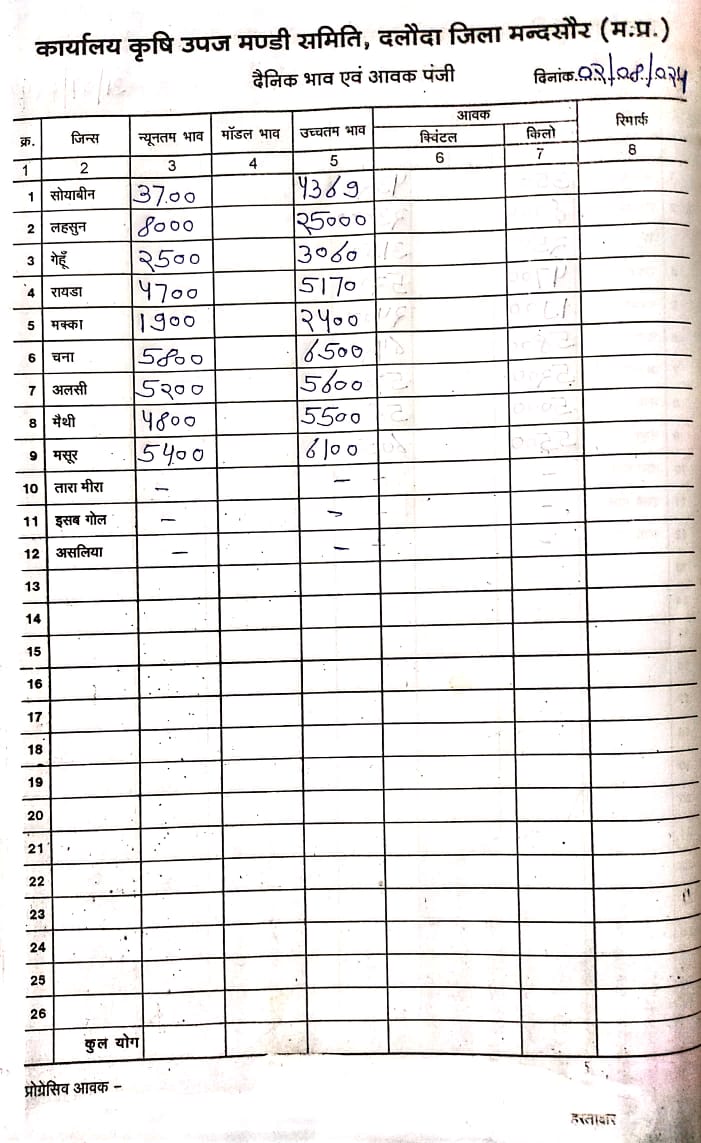 कार्यालय कृषि उपज मण्डी समिति, दलौदा जिला मन्दसौर (म.प्र.)
दैनिक भाव एवं आवक पंजी दिनांक.
क्र. जिन्स न्यूनतम भाव मॉडल भाव उच्चतम भाव आवक रिमार्क
क्विंटल किलो
1 2 3 4 5 6 7 8
1 सोयाबीन 3700 4369
2 लहसुन 8000 २5000
3 गेहूँ २500 3060
4 रायडा 4700 5170
5 मक्का 1900 २400
6 चना 5800 6500
7 अलसी 5२00 5600
8 मैथी 4800 5500
9 मसूर 5400 6100
10 तारा मीरा – –
11 इसब गोल – –
12 असलिया – –
13
14
15
16
17
18
19
20
21
22
23
24
25
26
कुल योग
प्रोग्रेसिव आवक –
हस्ताक्षर